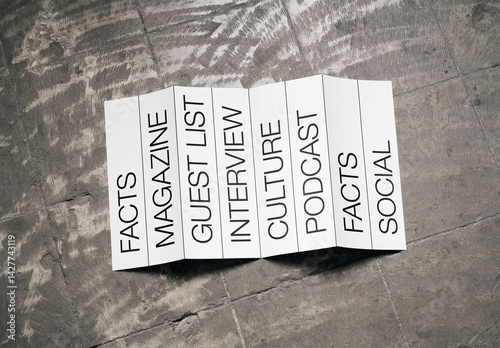 FACTS
MAGAZINE
GUEST LIST
INTERVIEW
CULTURE
PODCAST
FACTS
SOCIAL
Adobe Stock | #1427743119